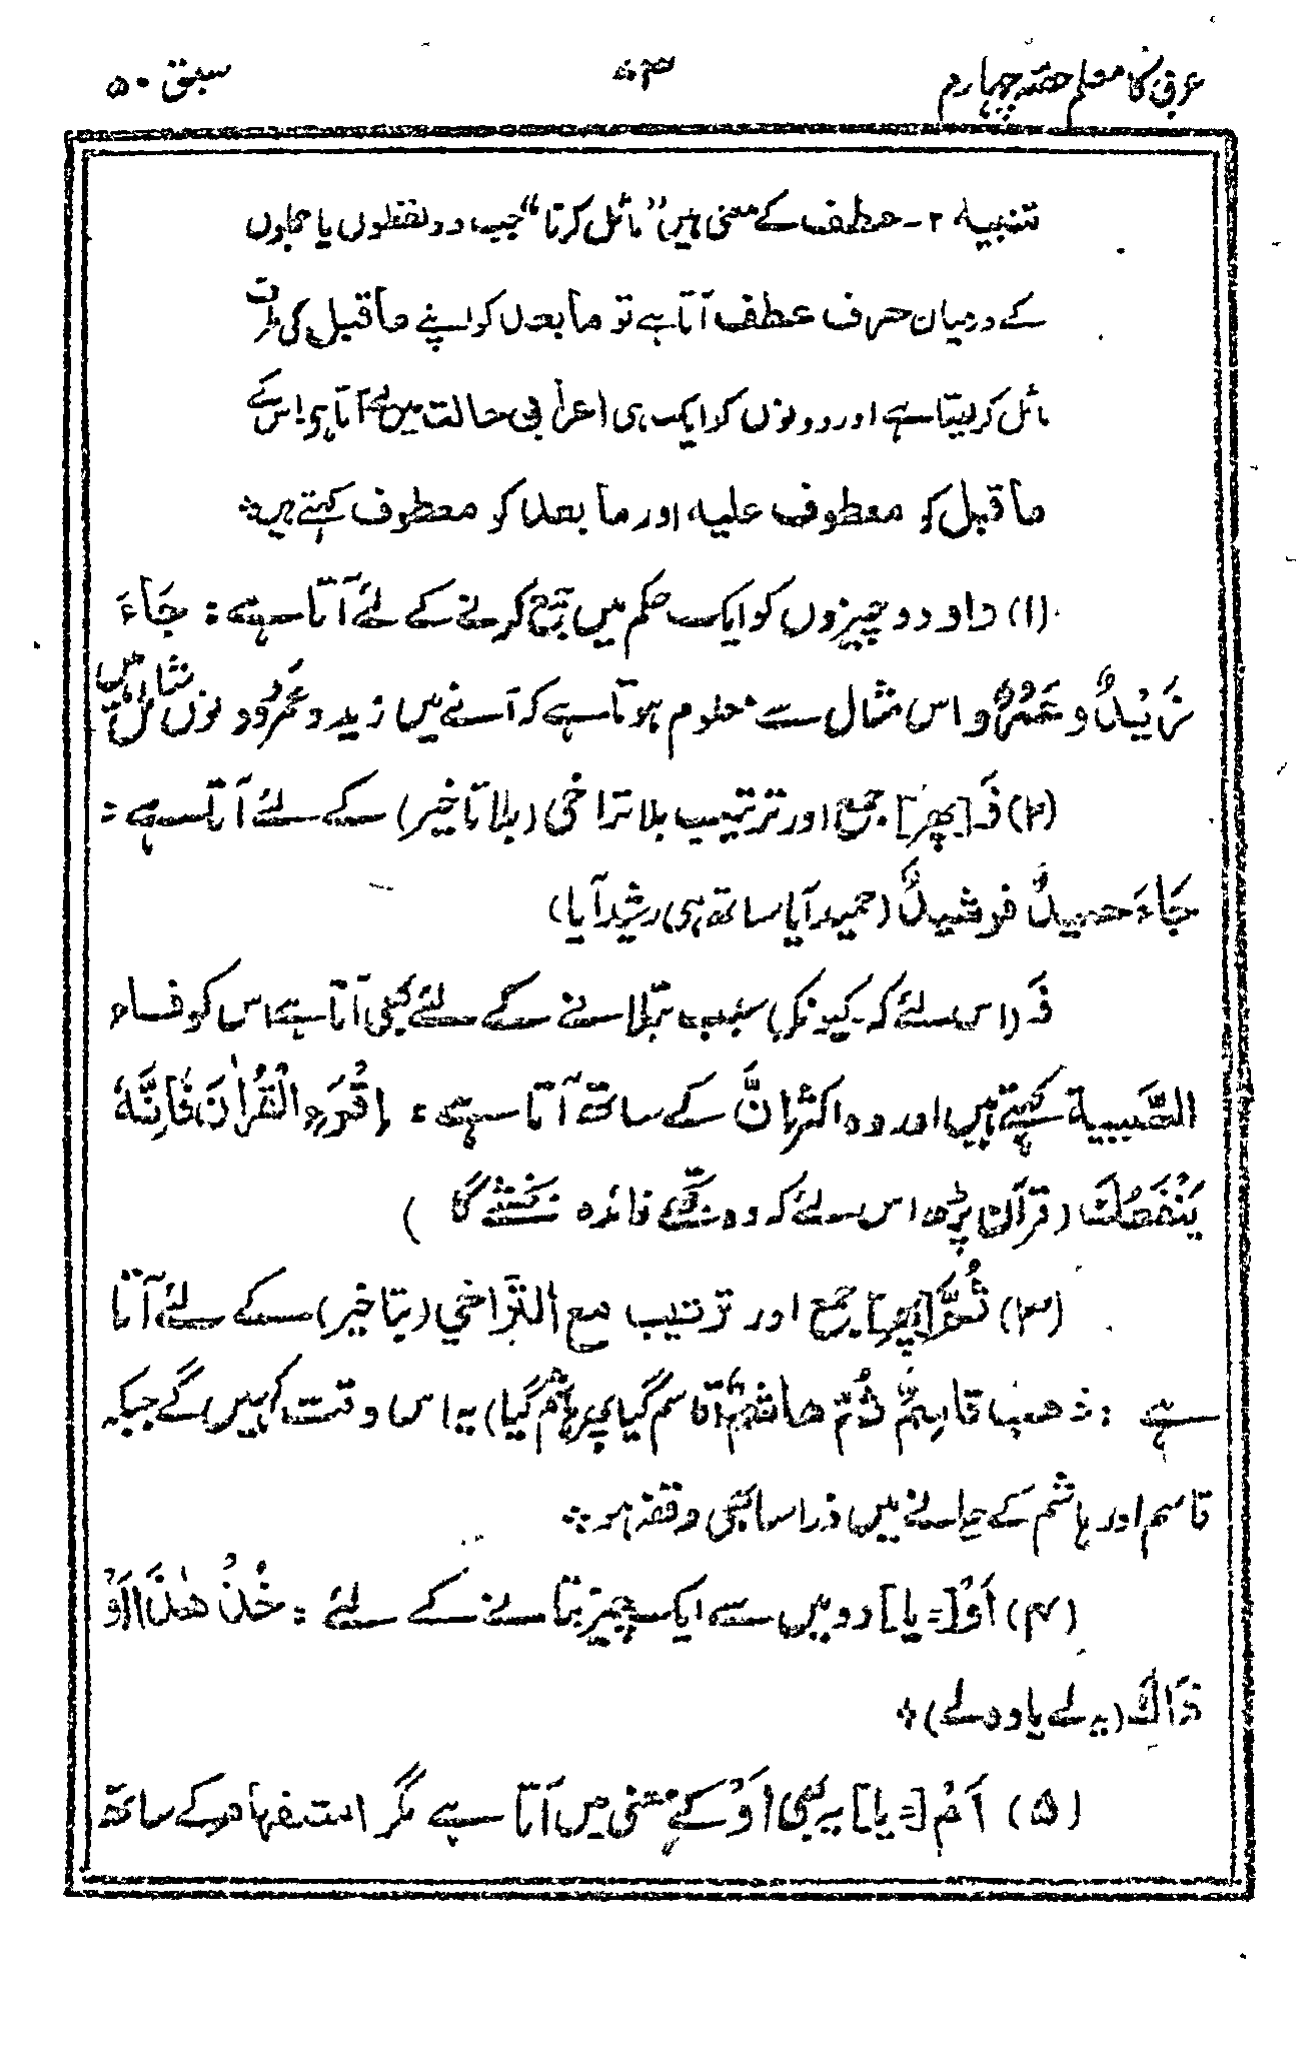 عربی کا معلم حصہ چہارم ۷۳ سبق ۵۰
تنبیہ ۲۔ عطف کے معنی ہیں ”مائل کرنا“ جب دو لفظوں یا جملوں
کے درمیان حرف عطف آتا ہے تو مابعد کو اپنے ماقبل کی طرف
مائل کر لیتا ہے اور دونوں کو ایک ہی اعرابی حالت میں لے آتا ہے اس کے
ماقبل کو معطوف علیہ اور مابعد کو معطوف کہتے ہیں ۞
(۱) واو دو چیزوں کو ایک حکم میں جمع کرنے کے لئے آتا ہے : جَاءَ
زَیْدٌ و عَمْرٌو اس مثال سے معلوم ہوتا ہے کہ آنے میں زید و عَمْرو دونوں شامل ہیں
(۲) فَ [پھر] جمع اور ترتیب بلا تراخی (بلا تاخیر) کے لئے آتا ہے :
جَاءَ حمیدٌ فرشیدٌ (حمید آیا ساتھ ہی رشید آیا)
فَ (اس لئے کہ۔ کیونکہ) سبب بتلانے کے لئے بھی آتا ہے اس کو فاء
السَّبَبِیة کہتے ہیں اور وہ اکثر اِنَّ کے ساتھ آتا ہے : اِقْرَءِ الْقُرْاٰنَ فَاِنَّهٗ
یَنْفَعُكَ (قرآن پڑھ اس لئے کہ وہ تجھے فائدہ بخشے گا )
(۳) ثُمَّ [پھر] جمع اور ترتیب مع التَّراخي (بتاخیر) کے لئے آتا
ہے : ذھب قاسِمٌ ثُمّ ھاشمٌ (قاسم گیا پھر ہاشم گیا) یہ اس وقت کہیں گے جبکہ
قاسم اور ہاشم کے جانے میں ذرا سا بھی وقفہ ہو ۞
(۴) اَوْ [= یا] دو میں سے ایک چیز بتانے کے لئے : خُذْ هٰذَا اَوْ
ذَاكَ (یہ لے یا وہ لے) ۞
(۵) اَمْ [= یا] یہ بھی اَوْ کے معنی میں آتا ہے مگر استفہام کے ساتھ